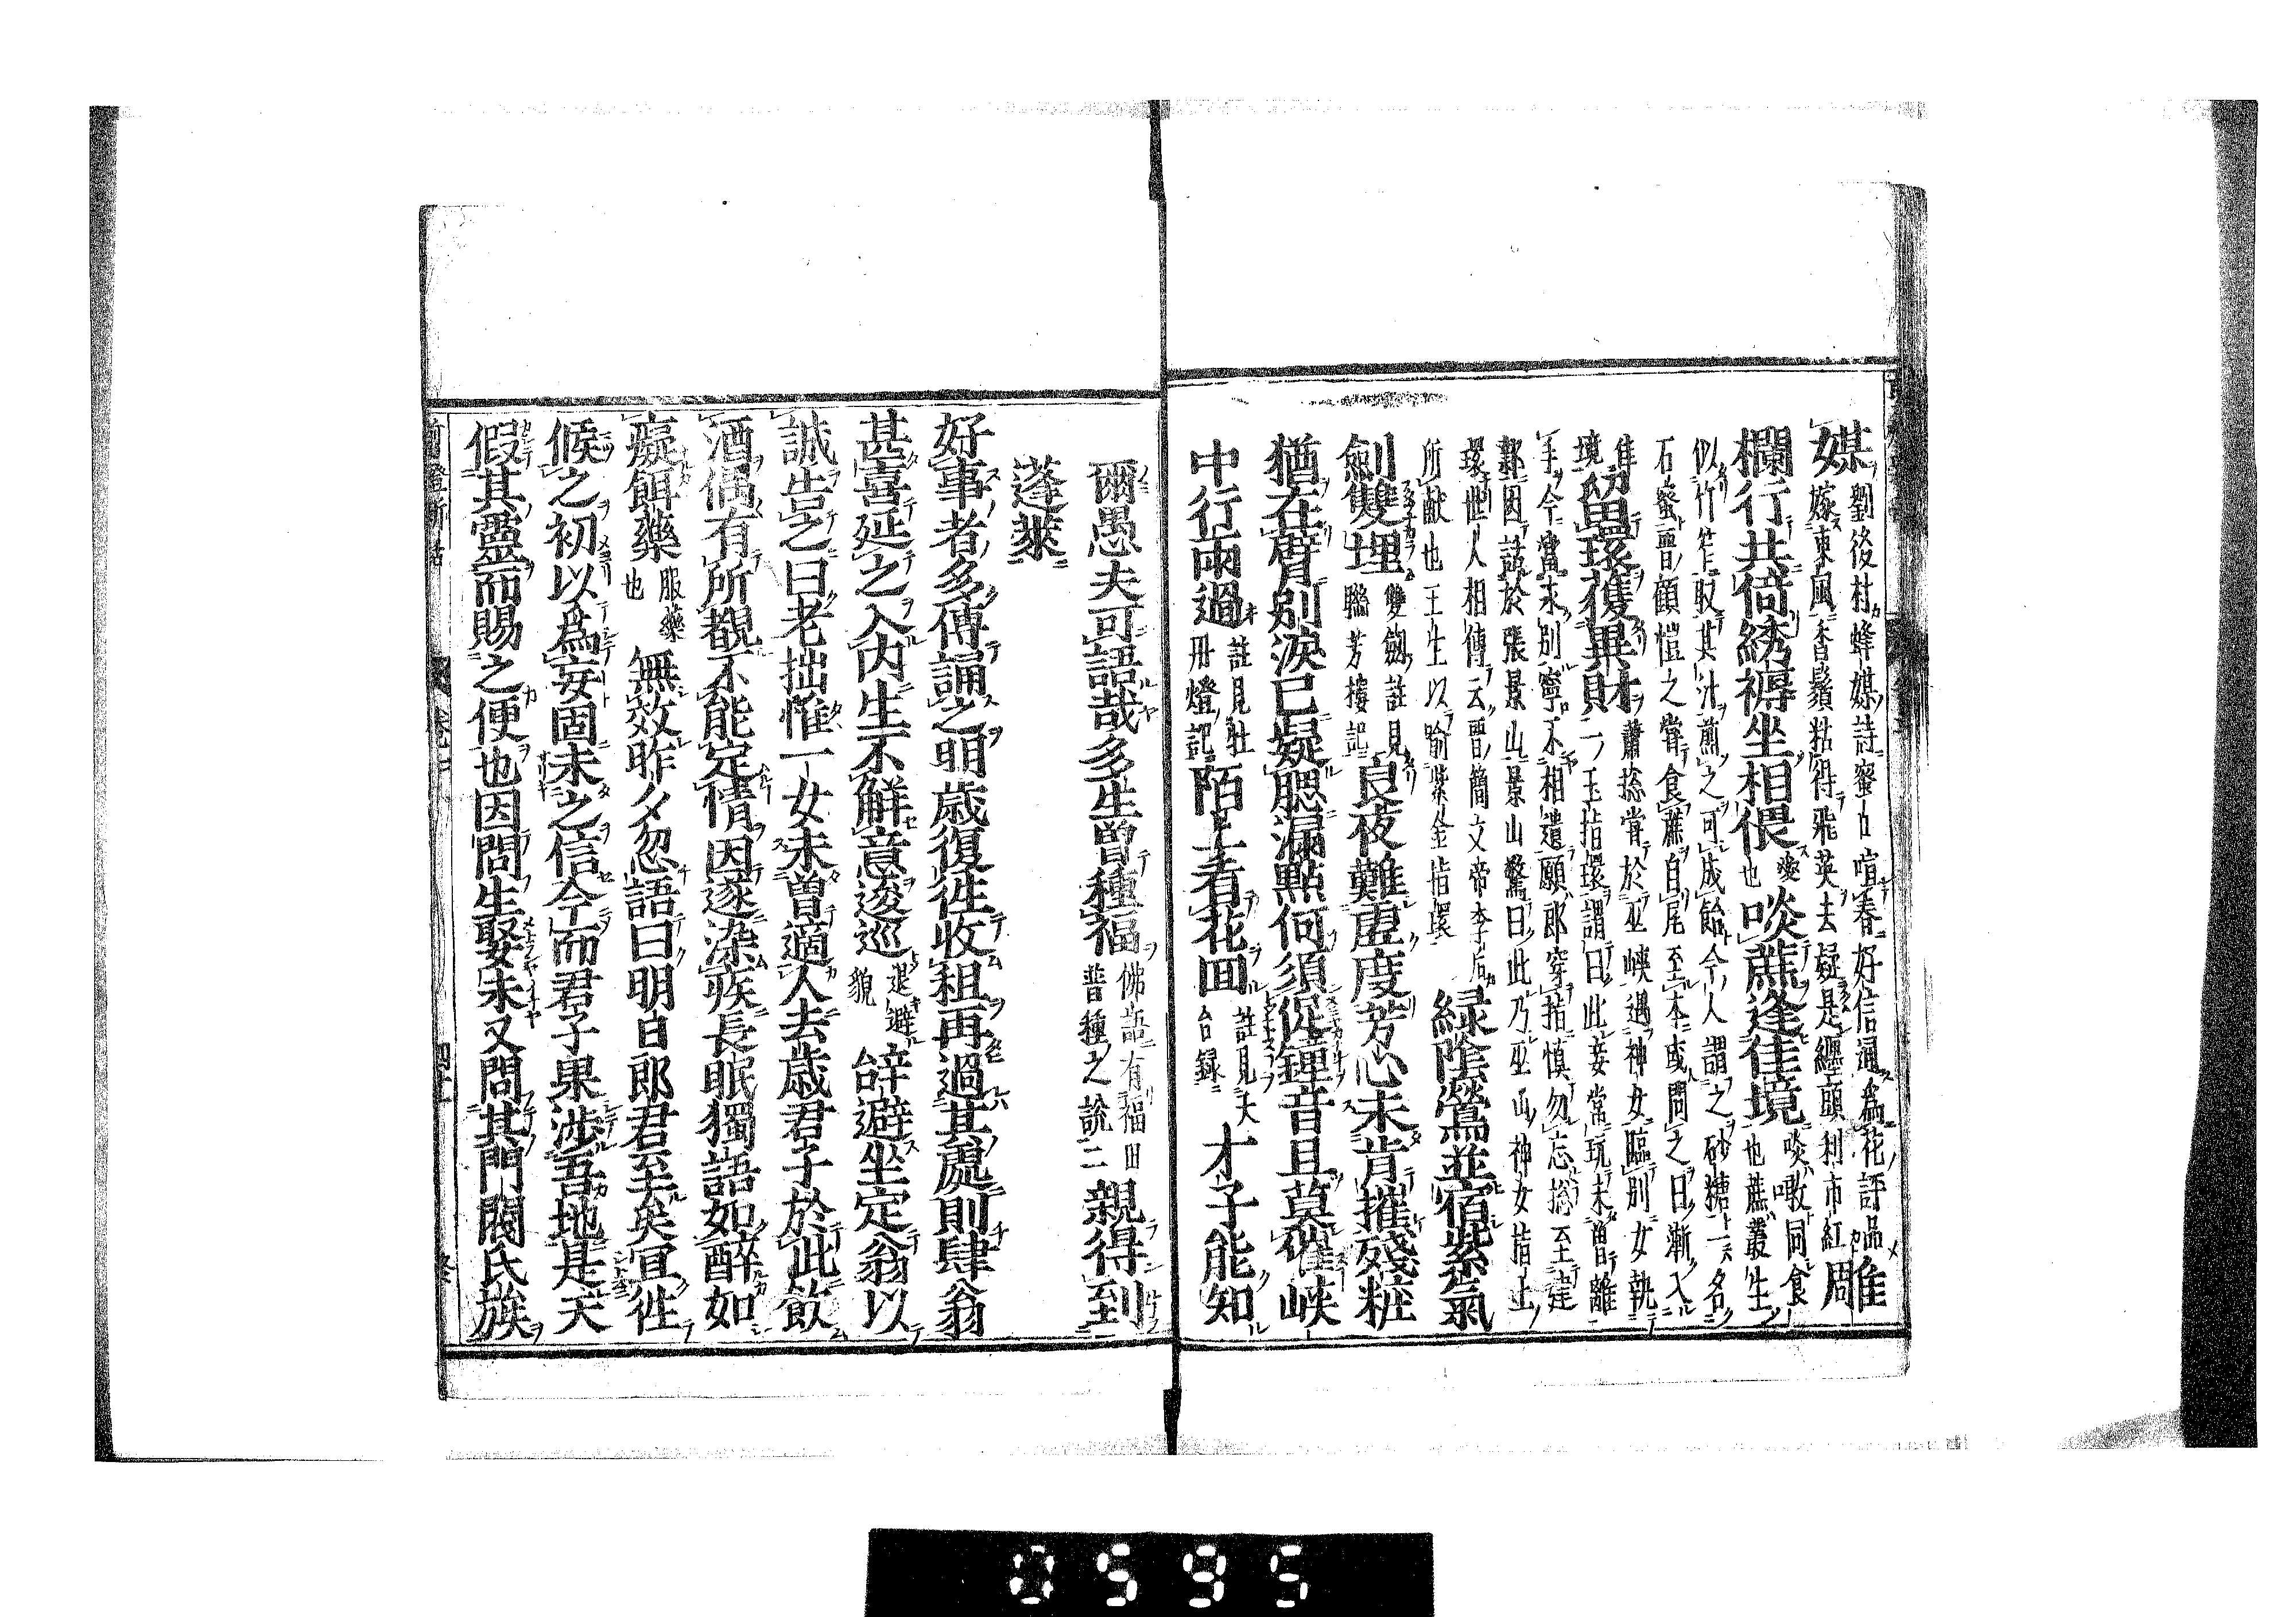 媒劉後村蜂媒詩蜜口喧春好信通為花評品
嫁東風香鬚粘得飛英去疑是纒頭利市紅雕
欄行共倚綉褥坐相偎愛也啖蔗逢佳境啖噉同食
也蔗叢生
似竹笮取其汁煎之可成飴今人謂之砂糖一名
石蜜晋顧愷之甞食蔗自尾至本或問之曰漸入
佳境留環獲異財蕭捴甞於巫峽遇神女臨別女執
二玉指環謂曰此妾常玩未曽離
手今當永別寧不相遣願郎穿指慎勿忘捴至建
鄴因話於張景山景山驚曰此乃巫山神女指上
環世人相傳云晋簡文帝李后
所獻也王生以喻紫金指環綠陰鶯並宿紫氣
劍雙埋雙劔註見
聯芳樓記良夜難虛度芳心未肯摧殘粧
猶在臂別淚已凝腮漏點何須促鐘音且莫催峽
中行雨過註見牡
丹燈記陌上看花回註見天
台録才子能知
爾愚夫可語哉多生曽種福佛語有福田
普種之說二親得到
蓬莱
好事者多傳誦之明歳復徃收租再過其處則肆翁
甚喜延之入内生不解意逡巡退避
貌辞避坐定翁以
誠告之曰老拙惟一女未曽適人去歳君子於此飲
酒偶有所覩不能定情因遂染疾長眠獨語如醉如
癡餌藥服藥
也無效昨夕忽語曰明日郎君至矣宜徃
候之初以為妄固未之信今而君子果渉吾地是天
假其靈而賜之便也因問生娶未又問其門閥氏族
剪燈新話
0595